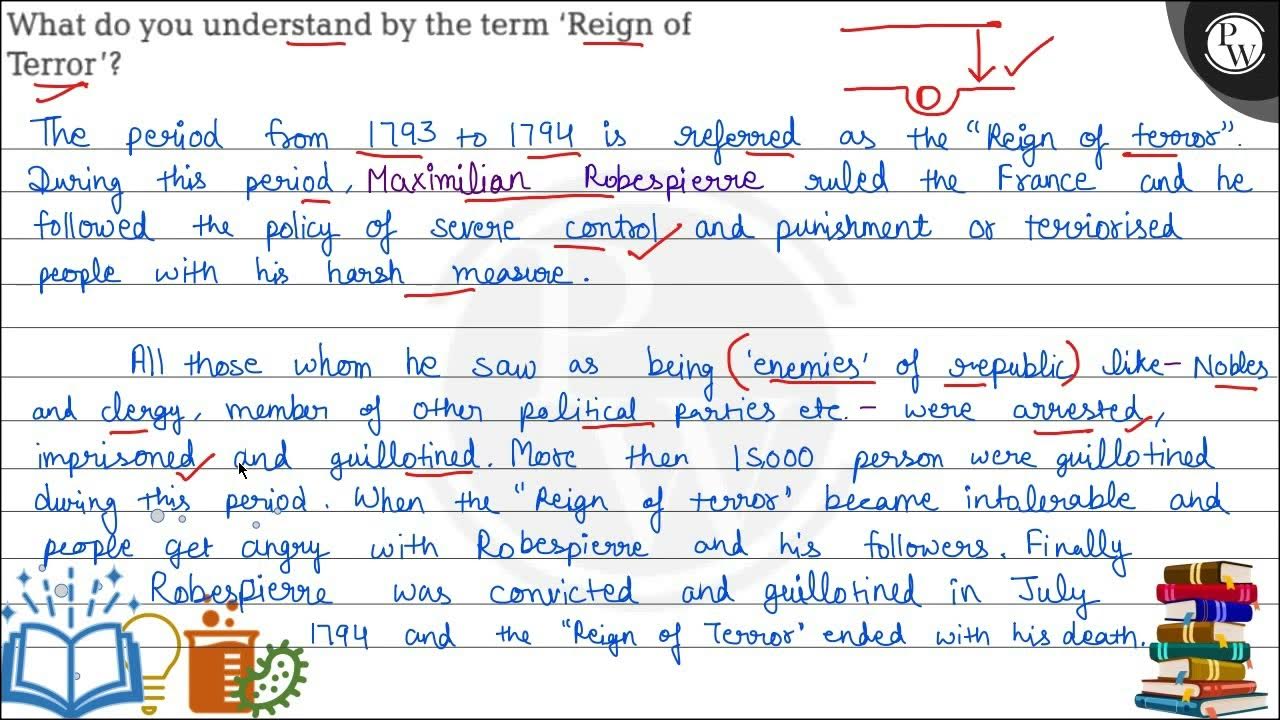 What do you understand by the term ‘Reign of
Terror’?
PW
The period from 1793 to 1794 is referred as the "Reign of terror".
During this period, Maximilian Robespierre ruled the France and he
followed the policy of severe control and punishment or terriorised
people with his harsh measure.
All those whom he saw as being ('enemies' of republic) like - Nobles
and clergy, member of other political parties etc. - were arrested,
imprisoned and guillotined. More then 15,000 person were guillotined
during this period. When the "Reign of terror' became intolerable and
people get angry with Robespierre and his followers. Finally
Robespierre was convicted and guillotined in July
1794 and the "Reign of Terror' ended with his death.